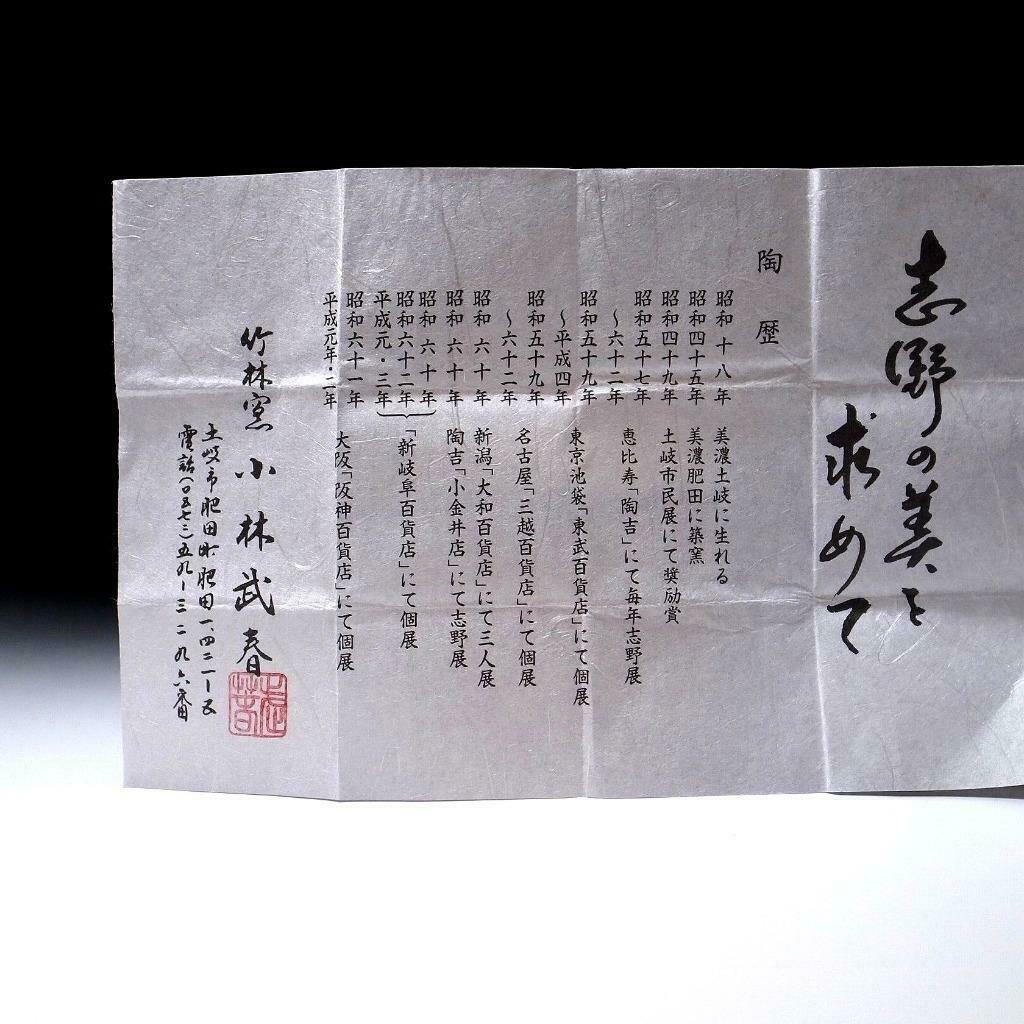 志野の美を
求めて
陶歴
昭和十八年 美濃土岐に生れる
昭和四十五年 美濃肥田に築窯
昭和四十九年 土岐市民展にて奨励賞
昭和五十七年
～六十二年 恵比寿「陶吉」にて毎年志野展
昭和五十九年
～平成四年 東京池袋「東武百貨店」にて個展
昭和五十九年
～六十二年 名古屋「三越百貨店」にて個展
昭和六十年 新潟「大和百貨店」にて三人展
昭和六十年 陶吉「小金井店」にて志野展
昭和六十年
昭和六十二年 「新岐阜百貨店」にて個展
平成元・三年
昭和六十一年
平成元年・二年 大阪「阪神百貨店」にて個展
竹林窯 小林武春
土岐市肥田町肥田一、四二一ー五
電話(〇五七二)五九ー三二九六番